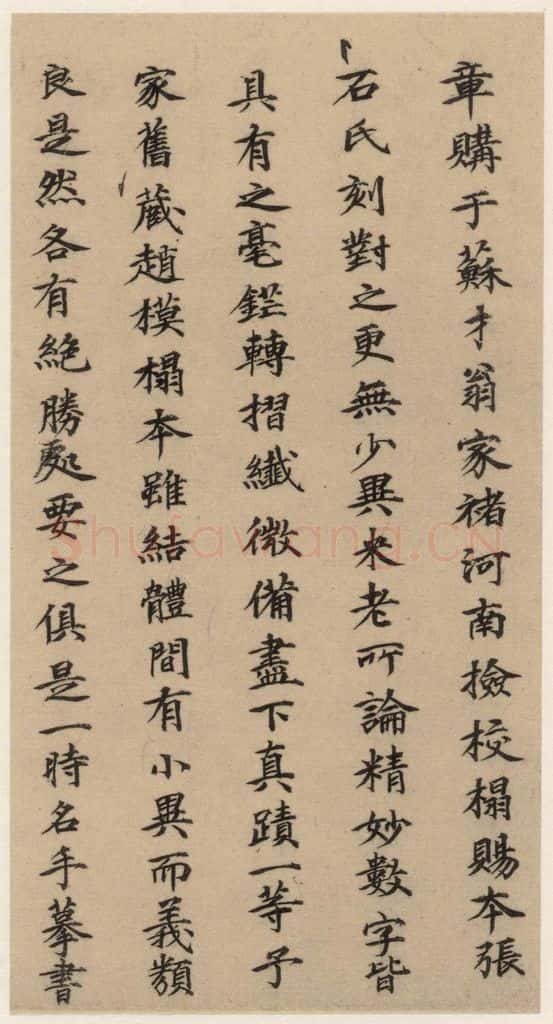 章購于蘇才翁家褚河南撿校榻賜本張
石氏刻對之更無少異米老所論精妙數字皆
具有之毫鋩轉摺纖微備盡下真蹟一等予
家舊蔵趙模榻本雖結體間有小異而義類
良是然各有絶勝處要之俱是一時名手摹書
shufawang.CN